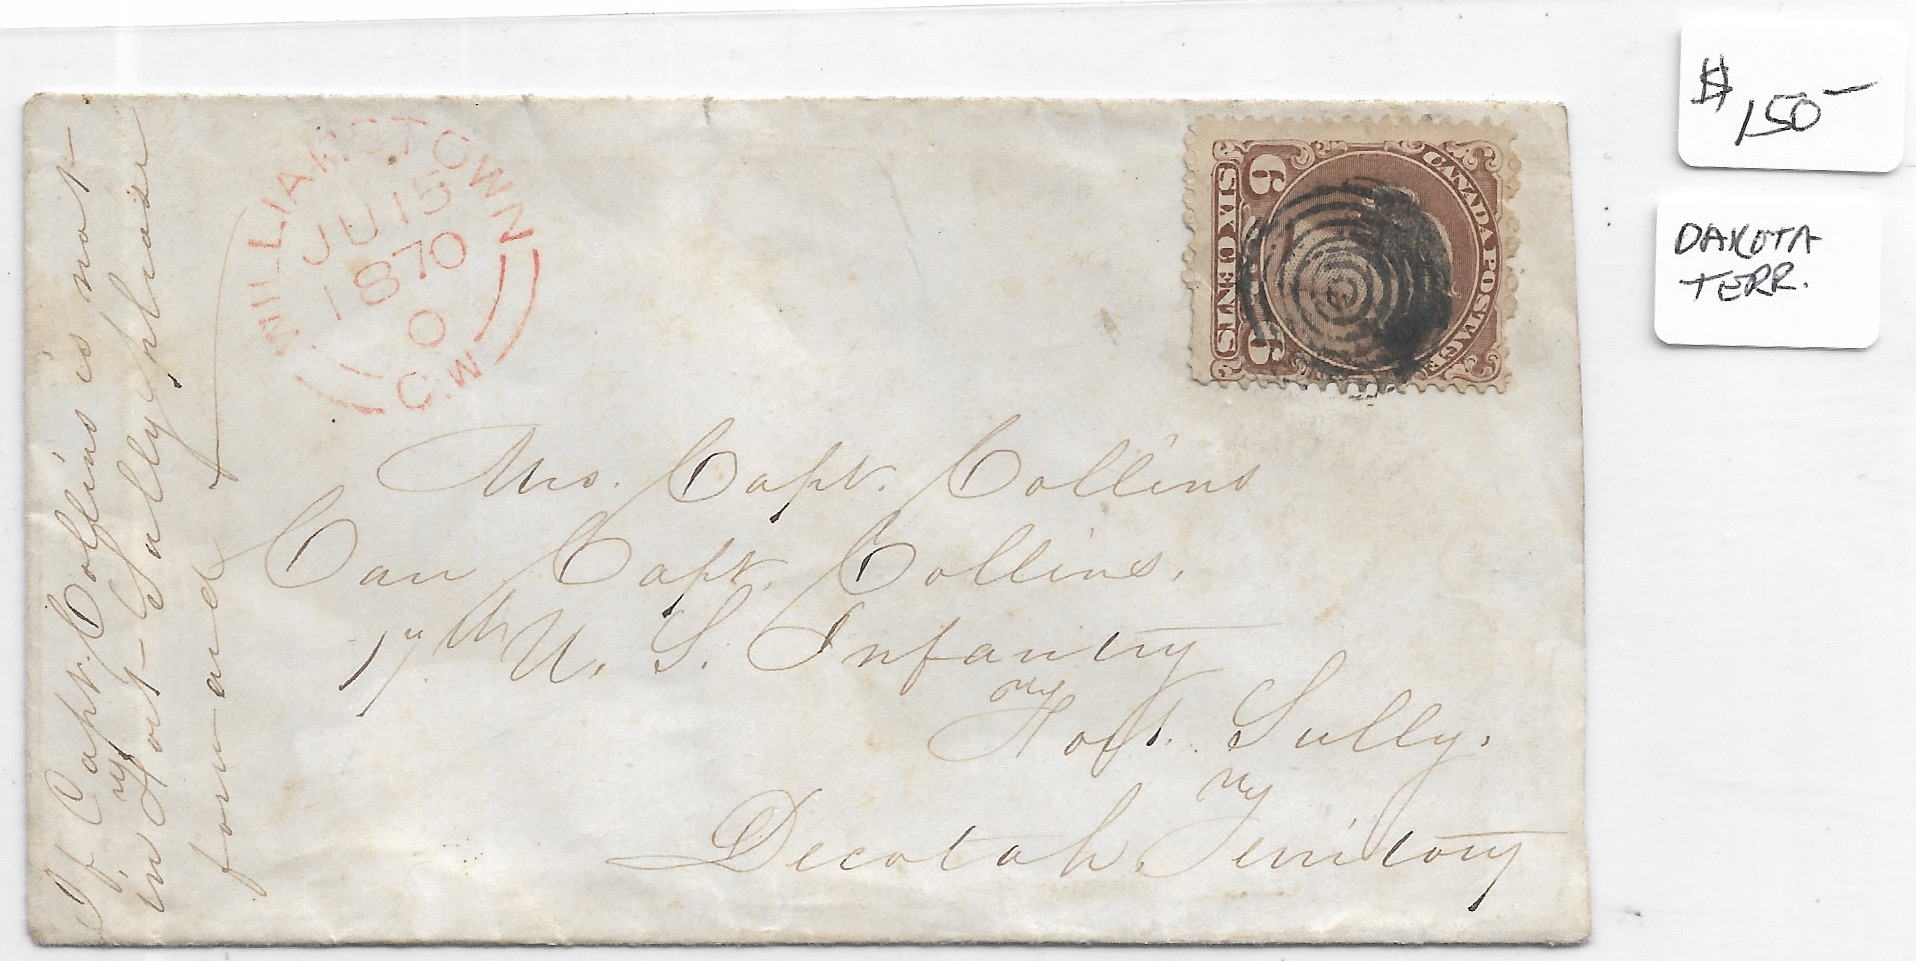 If Capt. Collins is not
in Fort Sully please
forward
WILLIAMSTOWN
JU 15
1870
0
C.W
CANADA POSTAGE
6
SIX CENTS
6
Mrs. Capt. Collins
Care Capt. Collins.
17th U. S. Infantry
Fort. Sully.
Decotah. Territory
$150-
DAKOTA
TERR.